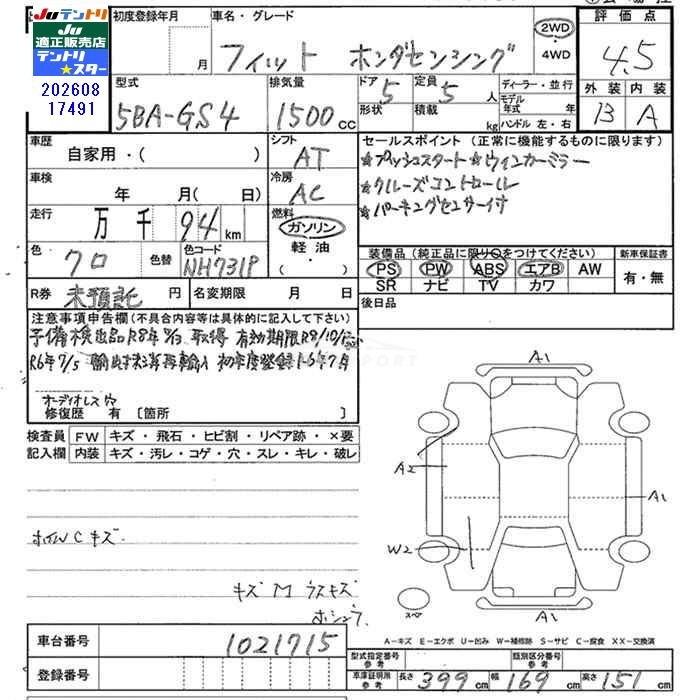 Juテントリ
Ju
適正販売店
テントリ
★スター
202608
17491
初度登録年月
月
車名・グレード
フィット ホンダセンシング
2WD
4WD
評価点
4.5
外装 内装
B A
型式
5BA-GS4
排気量
1500cc
ドア 5
形状
定員 5人
積載 kg
ディーラー・並行
モデル年式 年
ハンドル 左・右
車歴
自家用・( )
シフト
AT
車検
年 月( 日)
冷房
AC
走行
万 千 94km
燃料
ガソリン
軽油
・( )
色
クロ
色替
色コード
NH731P
R券
未預託 円
名変期限 月 日
セールスポイント (正常に機能するものに限ります)
★プッシュスタート★ウインカーミラー
★クルーズコントロール
★パーキングセンサー付
装備品(純正品に限り○をつけてください)
新車保証書
PS PW ABS エアB AW
SR ナビ TV カワ
有・無
後日品
注意事項申告欄(不具合内容等は具体的に記入して下さい)
予備検出品R8年 取得 有効期限R8/10/
R6年7/5 輸出抹消再輸入 初年度登録R6年7月
オーディオレス
修復歴 有 [箇所 ]
検査員
記入欄
FW キズ・飛石・ヒビ割・リペア跡・×要
内装 キズ・汚レ・コゲ・穴・スレ・キレ・破レ
ホイルC キズ
キズ M ウスキズ
A1
A2
A1
W2
スペア
A1
A－キズ E－エクボ U－凹み W－補修跡 S－サビ C－腐食 XX－交換済
車台番号
1021715
登録番号
型式指定番号
参考
類別区分番号
参考
車庫証明用
参考
長さ 399cm 幅 169cm 高さ 151cm